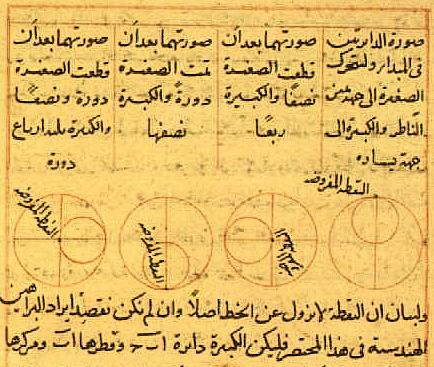 صورة الدايرتين
في المبدا ولتتحرك
الصغيرة الى جهة يمين
الناظر والكبيرة الى
جهة يساره
صورتهما بعد ان
قطعت الصغيرة
نصفًا والكبيرة
ربعًا
صورتهما بعد ان
تمت الصغيرة
دورةً والكبيرة
نصفها
صورتهما بعد ان
قطعت الصغيرة
دورة ونصفًا
والكبيرة ثلثة ارباع
دورة
النقطة المفروضة
النقطة المفروضة
النقطة المفروضة
النقطة المفروضة
ولبيان ان النقطة لا تزول عن الخط اصلًا وان لم نكن نقصد ايراد البراهين
الهندسية في هذا المختصر فليكن الكبيرة دائرة اب وقطرها اب ومركزها